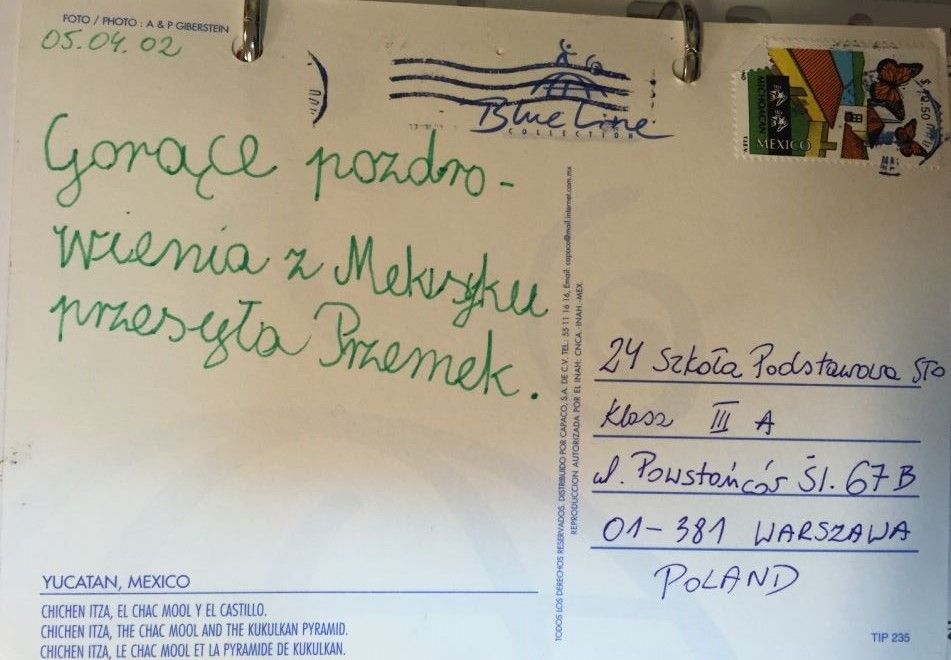 FOTO / PHOTO : A & P GIBERSTEIN
05.04.02
Blue Line
COLLECTION
$10.50
MICHOACAN
MEXICO
Gorące pozdro-
wienia z Meksyku
przesyła Przemek.
TODOS LOS DERECHOS RESERVADOS. DISTRIBUIDO POR CAPACO, S.A. DE C.V. TEL.: 55 11 16 16, Email: capaco@mail.internet.com.mx
REPRODUCCION AUTORIZADA POR EL INAH: CNCA.-INAH.-MEX.
24 Szkoła Podstawowa STO
Klasa III A
ul. Powstańców Śl. 67B
01-381 WARSZAWA
POLAND
YUCATAN, MEXICO
CHICHEN ITZA, EL CHAC MOOL Y EL CASTILLO.
CHICHEN ITZA, THE CHAC MOOL AND THE KUKULKAN PYRAMID.
CHICHEN ITZA, LE CHAC MOOL ET LA PYRAMIDE DE KUKULKAN.
TIP 235